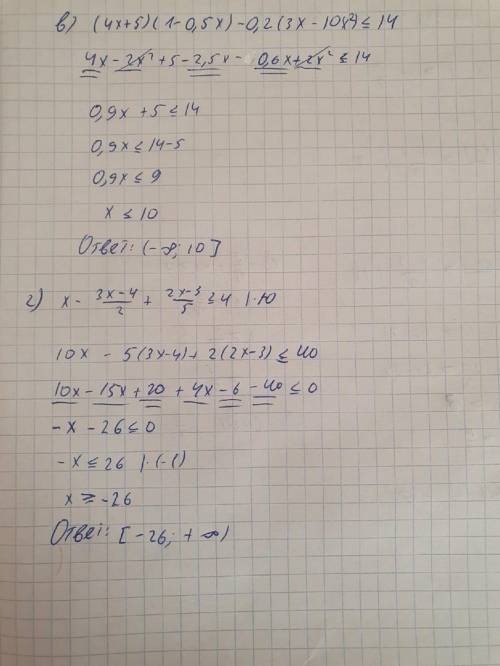 в) (4x+5)(1-0,5x)-0,2(3x-10x²)≤14
4x-2x²+5-2,5x-0,6x+2x²≤14
0,9x+5≤14
0,9x≤14-5
0,9x≤9
x≤10
Ответ: (-∞; 10]
г) x - \frac{3x-4}{2} + \frac{2x-3}{5} ≤ 4 | · 10
10x - 5(3x-4)+2(2x-3)≤40
10x-15x+20+4x-6-40≤0
-x-26≤0
-x≤26 | · (-1)
x≥-26
Ответ: [-26; +∞)